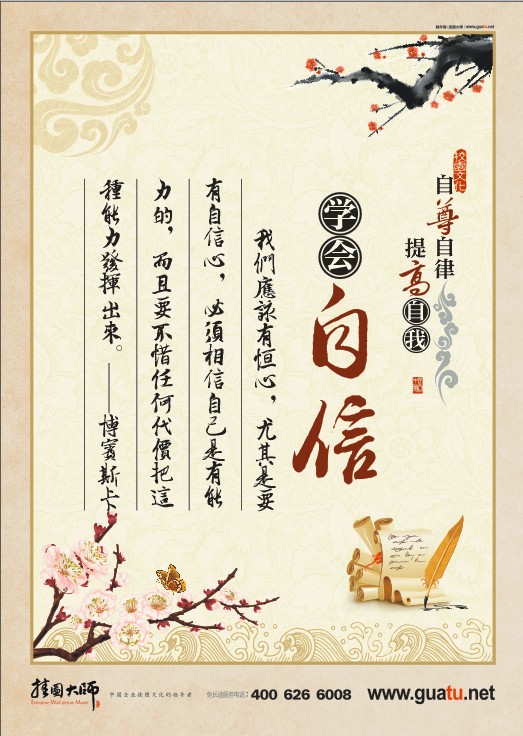 挂图大师 | www.guatu.net
校园文化
自尊自律
提高自我
学会
自信
我們應該有恒心，尤其是要
有自信心，必須相信自己是有能
力的，而且要不惜任何代價把這
種能力發揮出來。——博賓斯卡
挂图大师
Enterprise Wall picture Master
中国企业挂图文化的领导者
免长途服务电话：400 626 6008
www.guatu.net